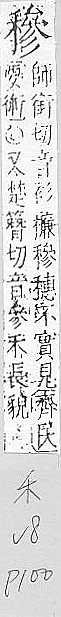 穇
師銜切音衫䅟穇穗不實見齊民
要術〇又楚簪切音參禾長貌
禾
V8
P100